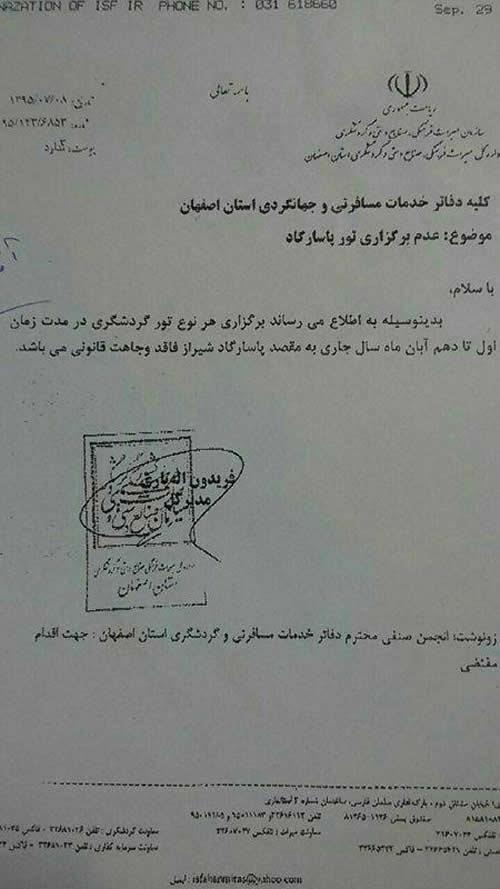 NAZATION OF ISF IR PHONE NO. : 031 618660
Sep. 29
باسمه تعالی
تاریخ: ۱۳۹۵/۰۷/۰۸
۹۵/۱۴۳/۶۸۵۳
پیوست: ندارد
ریاست جمهوری
سازمان میراث فرهنگی، صنایع دستی و گردشگری
اداره کل میراث فرهنگی، صنایع دستی و گردشگری استان اصفهان
کلیه دفاتر خدمات مسافرتی و جهانگردی استان اصفهان
موضوع: عدم برگزاری تور پاسارگاد
با سلام،
بدینوسیله به اطلاع می رساند برگزاری هر نوع تور گردشگری در مدت زمان
اول تا دهم آبان ماه سال جاری به مقصد پاسارگاد شیراز فاقد وجاهت قانونی می باشد.
فریدون اله یاری
مدیر کل
استان اصفهان
رونوشت: انجمن صنفی محترم دفاتر خدمات مسافرتی و گردشگری استان اصفهان : جهت اقدام
مقتضی
isfahanmiras@yahoo.com : ایمیل